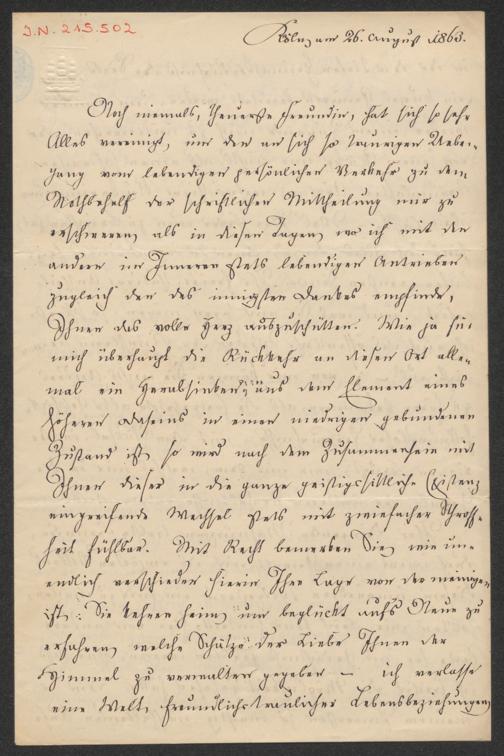 I.N. 215.502
Köln, am 26. August 1863.
Noch niemals, theuerste Freundin, hat sich so sehr
Alles vereinigt, um den an sich so traurigen Ueber-
gang vom lebendigen persönlichen Verkehr zu dem
Nothbehelf der schriftlichen Mittheilung mir zu
erschweren, als in diesen Tagen, wo ich mit den
andern im Inneren stets lebendigen Antrieben
zugleich den des innigsten Dankes empfinde,
Ihnen das volle Herz auszuschütten. Wie ja für
mich überhaupt die Rückkehr an diesen Ort alle-
mal ein Herabsinken aus dem Element eines
höheren Daseins in einen niedrigen gebundenen
Zustand ist, so wird nach dem Zusammensein mit
Ihnen dieser in die ganze geistig-sittliche Existenz
eingreifende Wechsel stets mit zwiefacher Schroff-
heit fühlbar. Mit Recht bemerken Sie, wie un-
endlich verschieden hierin Ihre Lage von der meinigen
ist: Sie kehren heim, um beglückt auf's Neue zu
erfahren, welche Schätze der Liebe Ihnen der
Himmel zu verwalten gegeben — ich verlasse
eine Welt freundlich-traulicher Lebensbeziehungen,